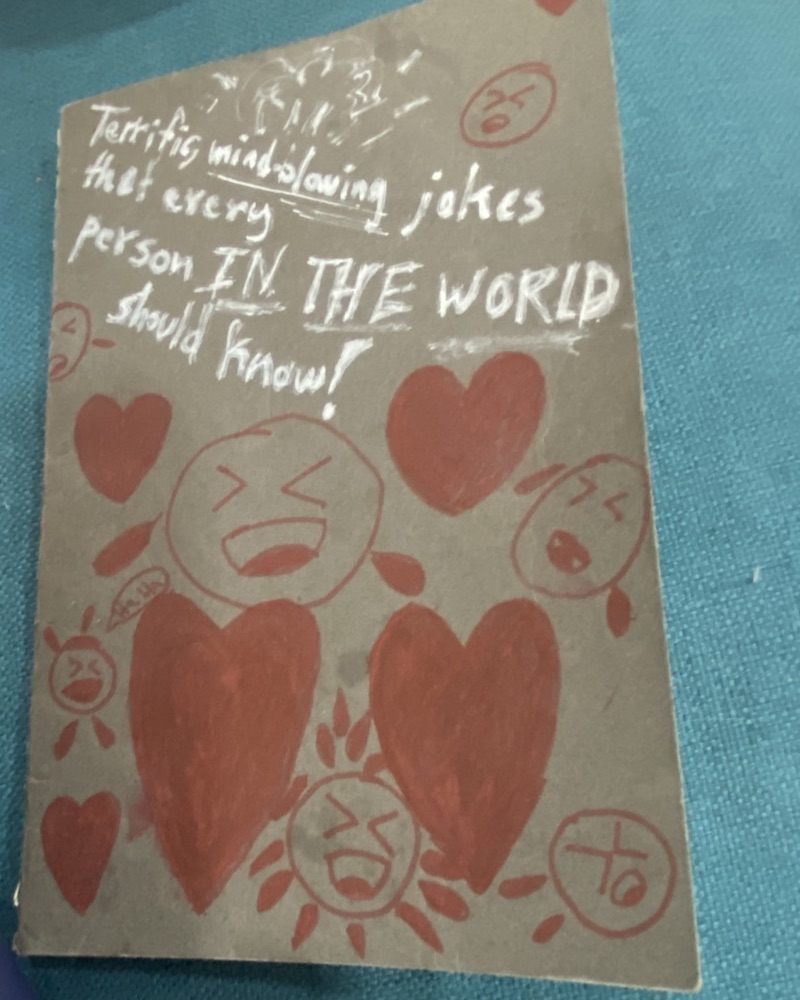 Terrific, mind-blowing jokes
that every
person IN THE WORLD
should know!
Ha Ha